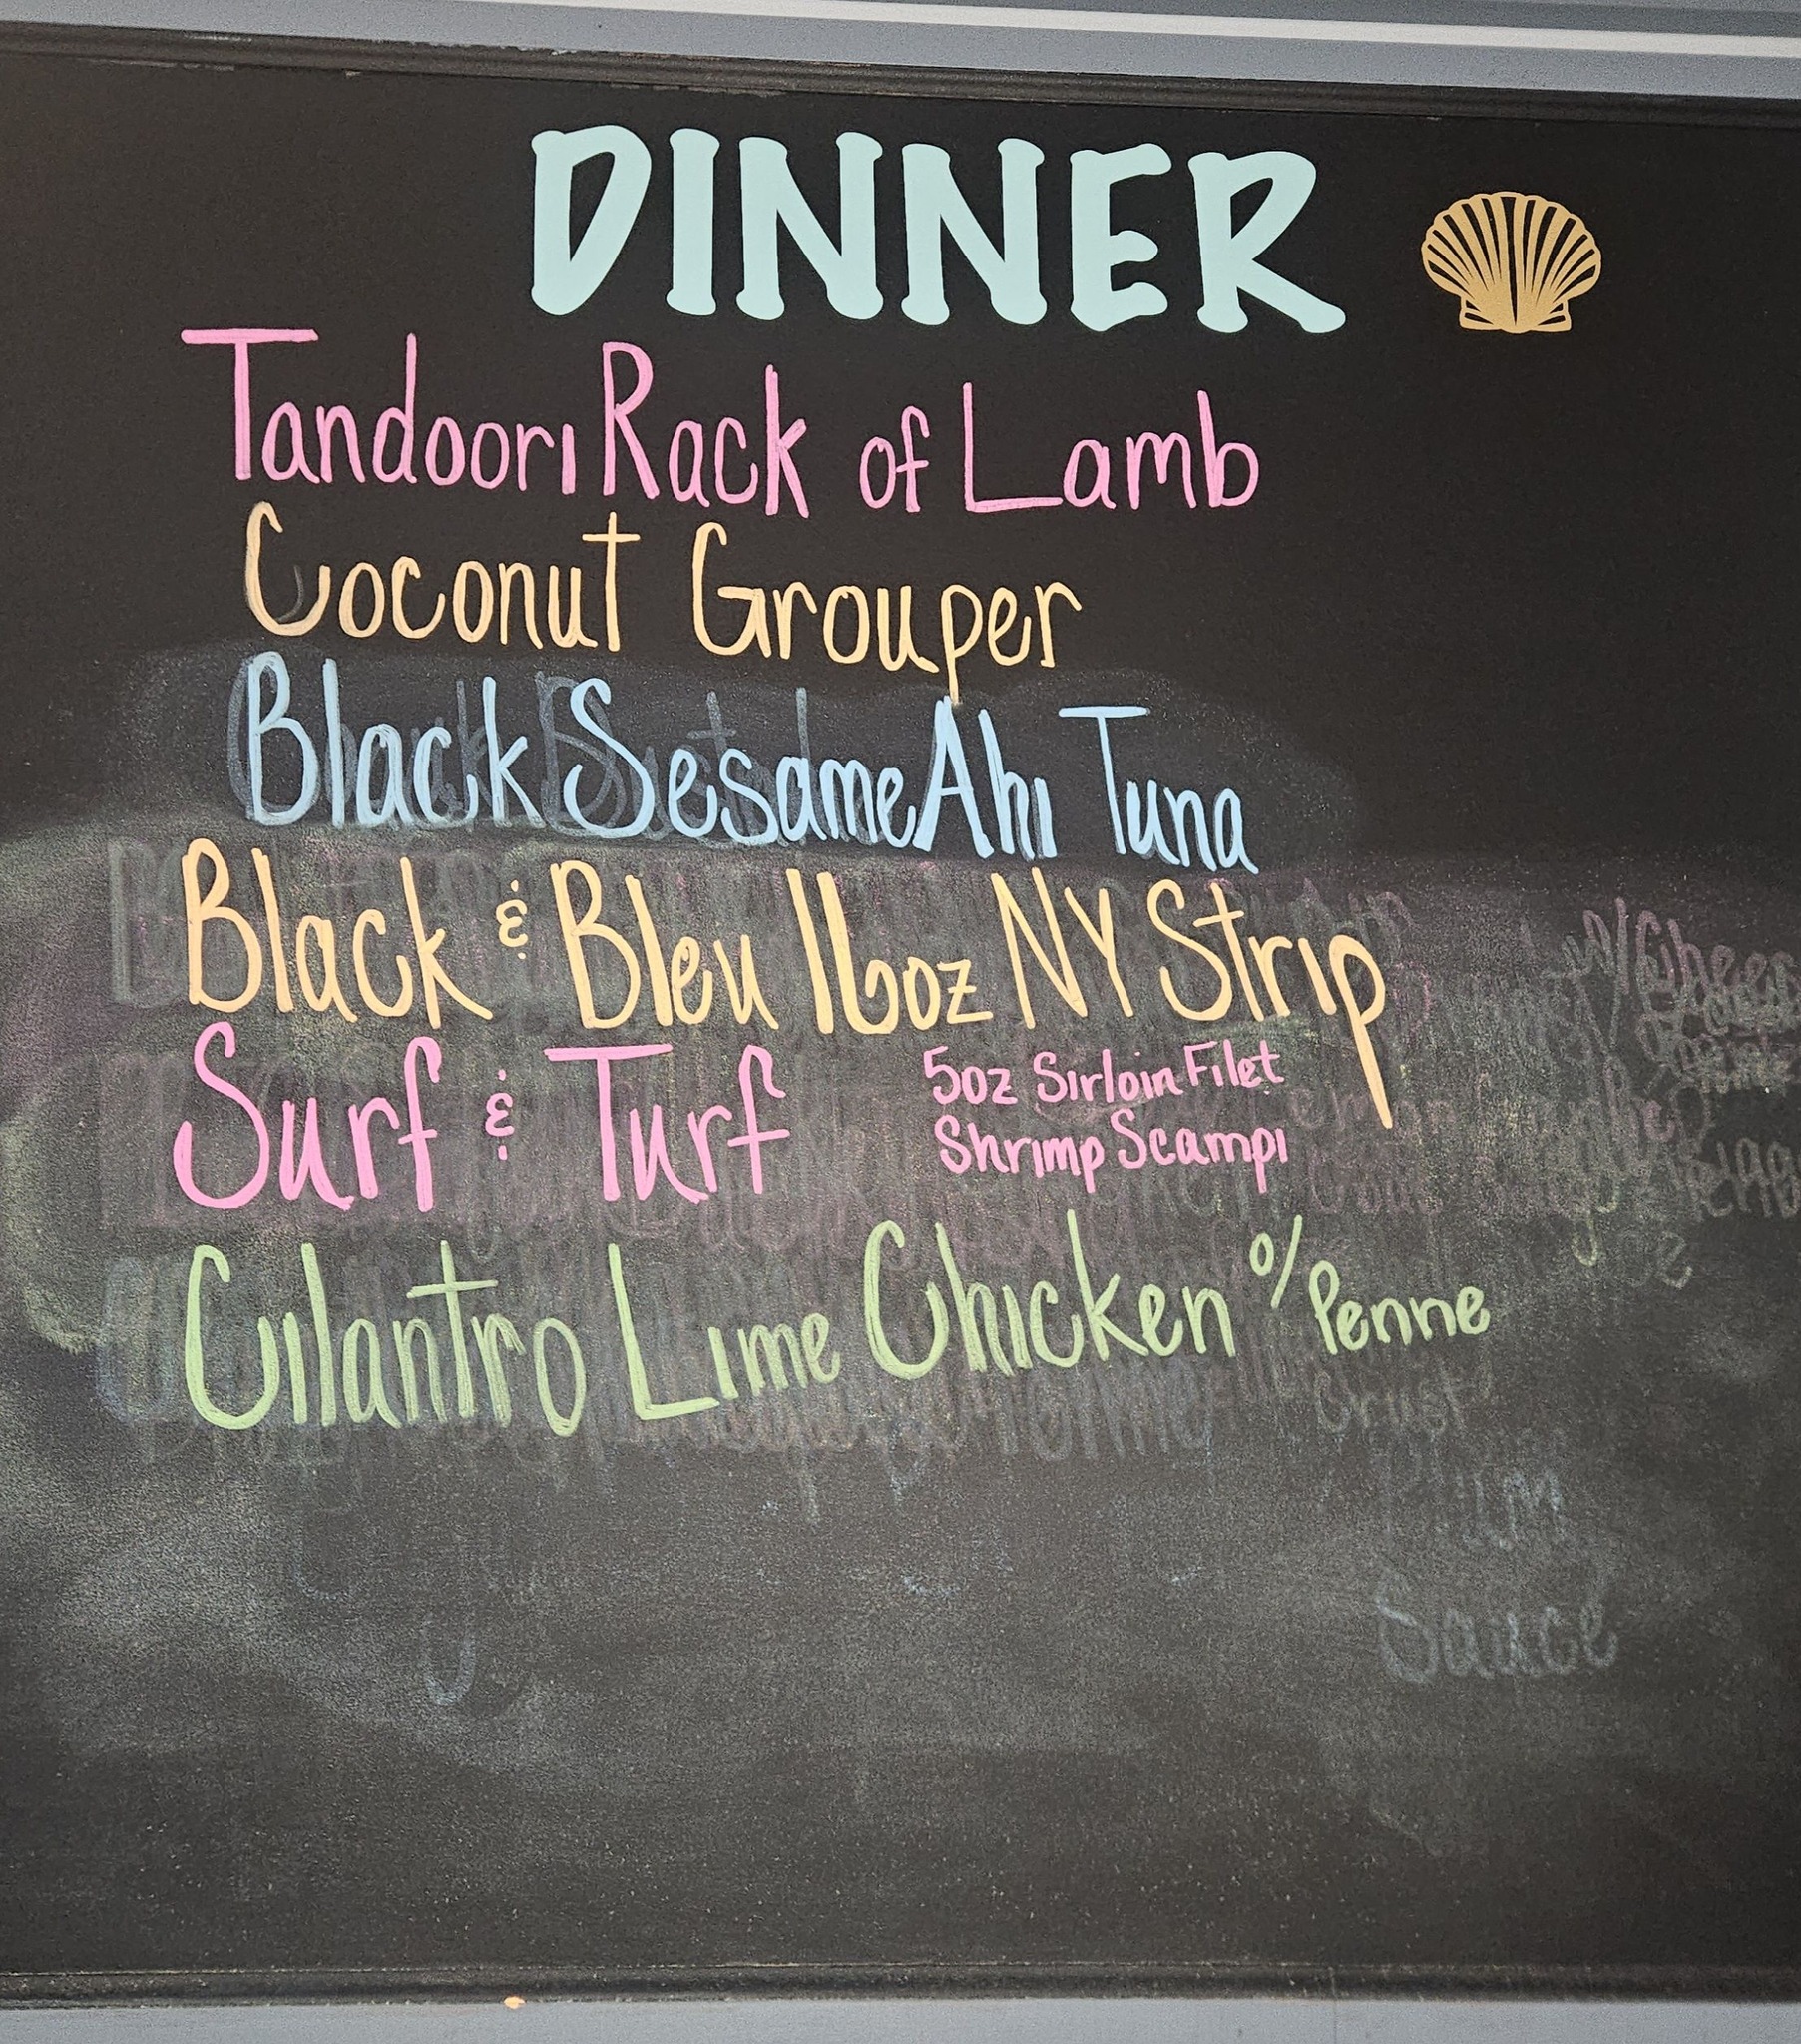 DINNER
Tandoori Rack of Lamb
Coconut Grouper
Black Sesame Ahi Tuna
Black & Bleu 16oz NY Strip
Surf & Turf
5oz Sirloin Filet
Shrimp Scampi
Cilantro Lime Chicken o/ Penne
Sauce